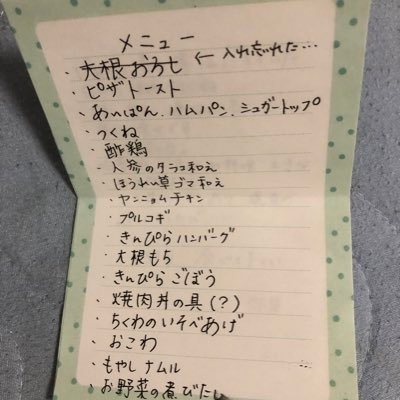 メニュー
・大根おろし ← 入れ忘れた...
・ピザトースト
・あいぱん、ハムパン、シュガートップ
・つくね
・酢鶏
・人参のタラコ和え
・ほうれい草ゴマ和え
・ヤンニョムチキン
・プルコギ
・きんぴらハンバーグ
・大根もち
・きんぴらごぼう
・焼肉丼の具(?)
・ちくわのいそべあげ
・おこわ
・もやしナムル
・お野菜の煮びたし